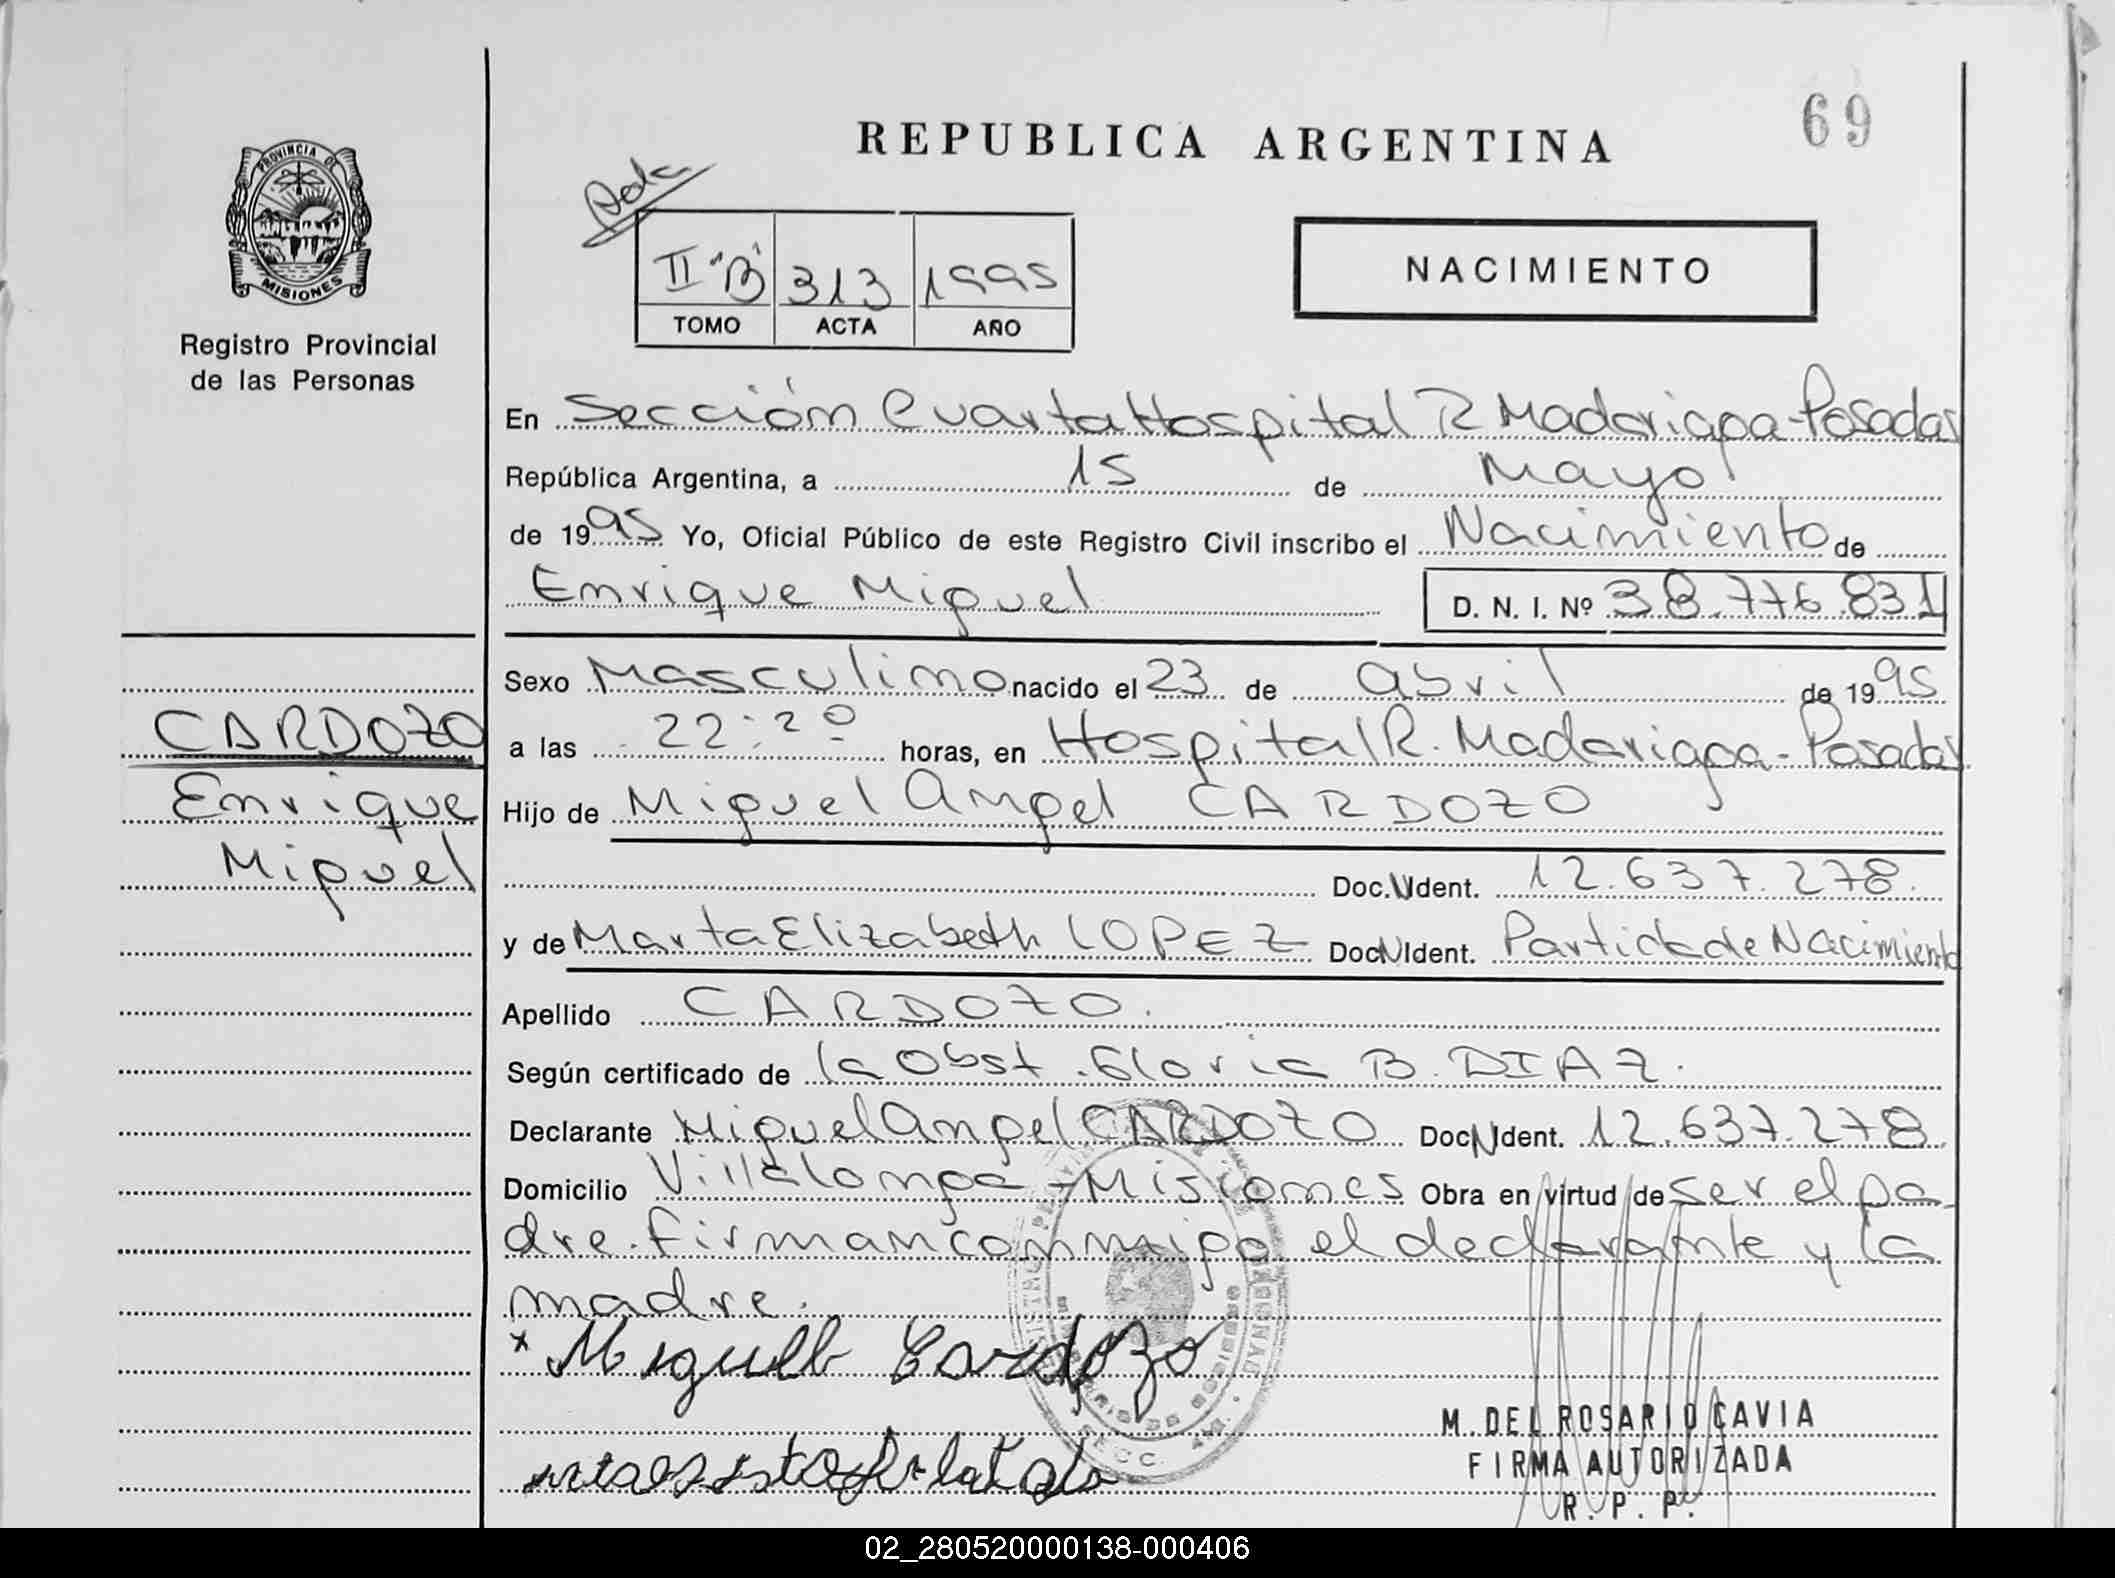 69
REPUBLICA ARGENTINA
PROVINCIA DE
MISIONES
Registro Provincial
de las Personas
II "B" 313 1995
TOMO ACTA AÑO
NACIMIENTO
En Sección Cuarta Hospital R Madariaga - Posadas
República Argentina, a 15 de Mayo
de 1995 Yo, Oficial Público de este Registro Civil inscribo el Nacimiento de
Enrique Miguel D. N. I. Nº 38.776.831
Sexo Masculino nacido el 23 de abril de 1995
a las 22:20 horas, en Hospital R. Madariaga - Posadas
Hijo de Miguel Angel CARDOZO
Doc. Ident. 12.637.278.
y de Marta Elizabeth LOPEZ Doc Ident. Partida de Nacimiento
Apellido CARDOZO.
Según certificado de la Obst. Gloria B. DIAZ.
Declarante Miguel Angel CARDOZO Doc Ident. 12.637.278
Domicilio Villalonga - Misiones Obra en virtud de ser el pa
dre. firman conmigo el declarante y la
madre.
CARDOZO
Enrique
Miguel
x Miguell Cardozo
M. DEL ROSARIO CAVIA
FIRMA AUTORIZADA
R. P. P.
SECC.
02_280520000138-000406